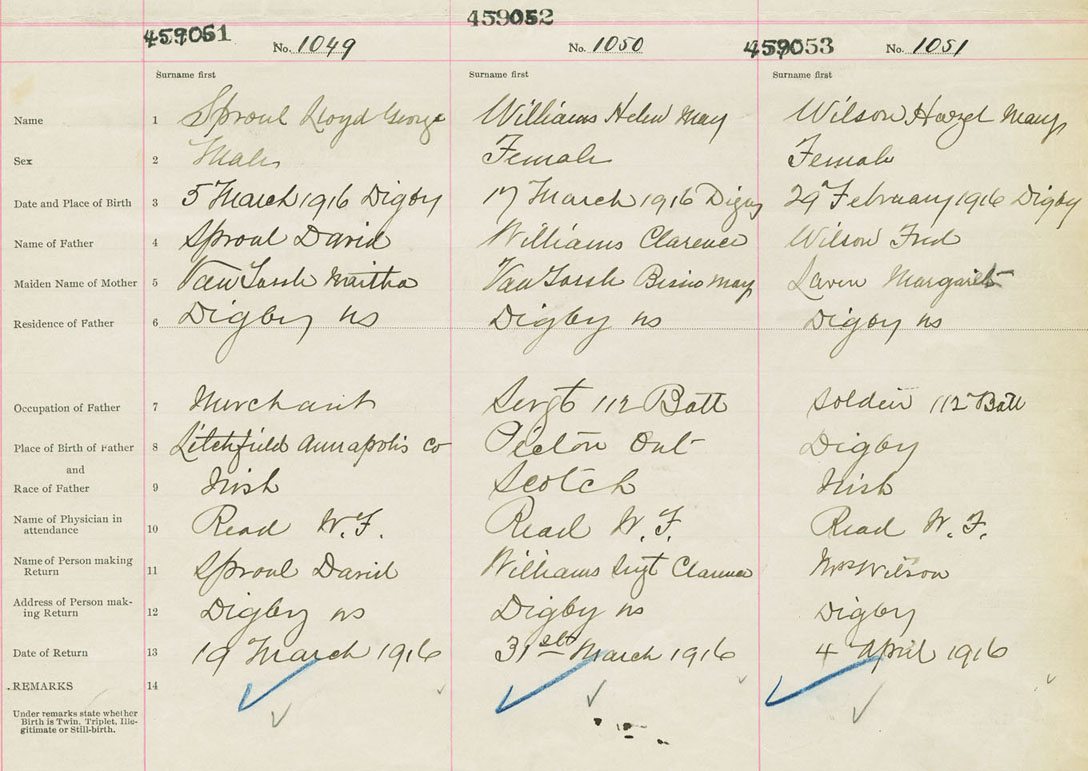 459051 459052 459053
No. 1049 No. 1050 No. 1051
Surname first Surname first Surname first
Name 1 Sproul Lloyd George Williams Helen May Wilson Hazel Mary
Sex 2 Male Female Female
Date and Place of Birth 3 5 March 1916 Digby 17 March 1916 Digby 29 February 1916 Digby
Name of Father 4 Sproul David Williams Clarence Wilson Fred
Maiden Name of Mother 5 VanTassle Martha VanTassle Bessie May Margaret
Residence of Father 6 Digby ns Digby ns Digby ns
Occupation of Father 7 Merchant Sergt 112 Batt Soldier 112 Batt
Place of Birth of Father 8 Litchfield Annapolis Co Picton Ont Digby
and
Race of Father 9 Irish Scotch Irish
Name of Physician in
attendance 10 Read W.F. Read W.F. Read W.F.
Name of Person making
Return 11 Sproul David Williams Sergt Clarence Mrs Wilson
Address of Person mak-
ing Return 12 Digby ns Digby ns Digby
Date of Return 13 19 March 1916 31st March 1916 4 April 1916
REMARKS 14
Under remarks state whether
Birth is Twin, Triplet, Ille-
gitimate or Still-birth.